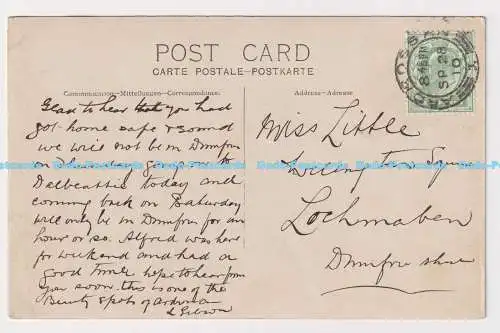 POST CARD
CARTE POSTALE-POSTKARTE
Communication-Mittellungen-Correspondence.
Address-Adresse
ARDROSSAN
845PM
SP 28
10
Glad to hear that you had
got home safe & sound
we will not be in Dumfries
on Thursday gone to
Dalbeattie today and
coming back on Saturday
will only be in Dumfries for an
hour or so. Alfred was here
for weekend and had a
good time hope to hear from
you soon. this is one of the
Beauty spots of
L Gibson
Miss Little
Square
Lochmaben
Dumfries shire